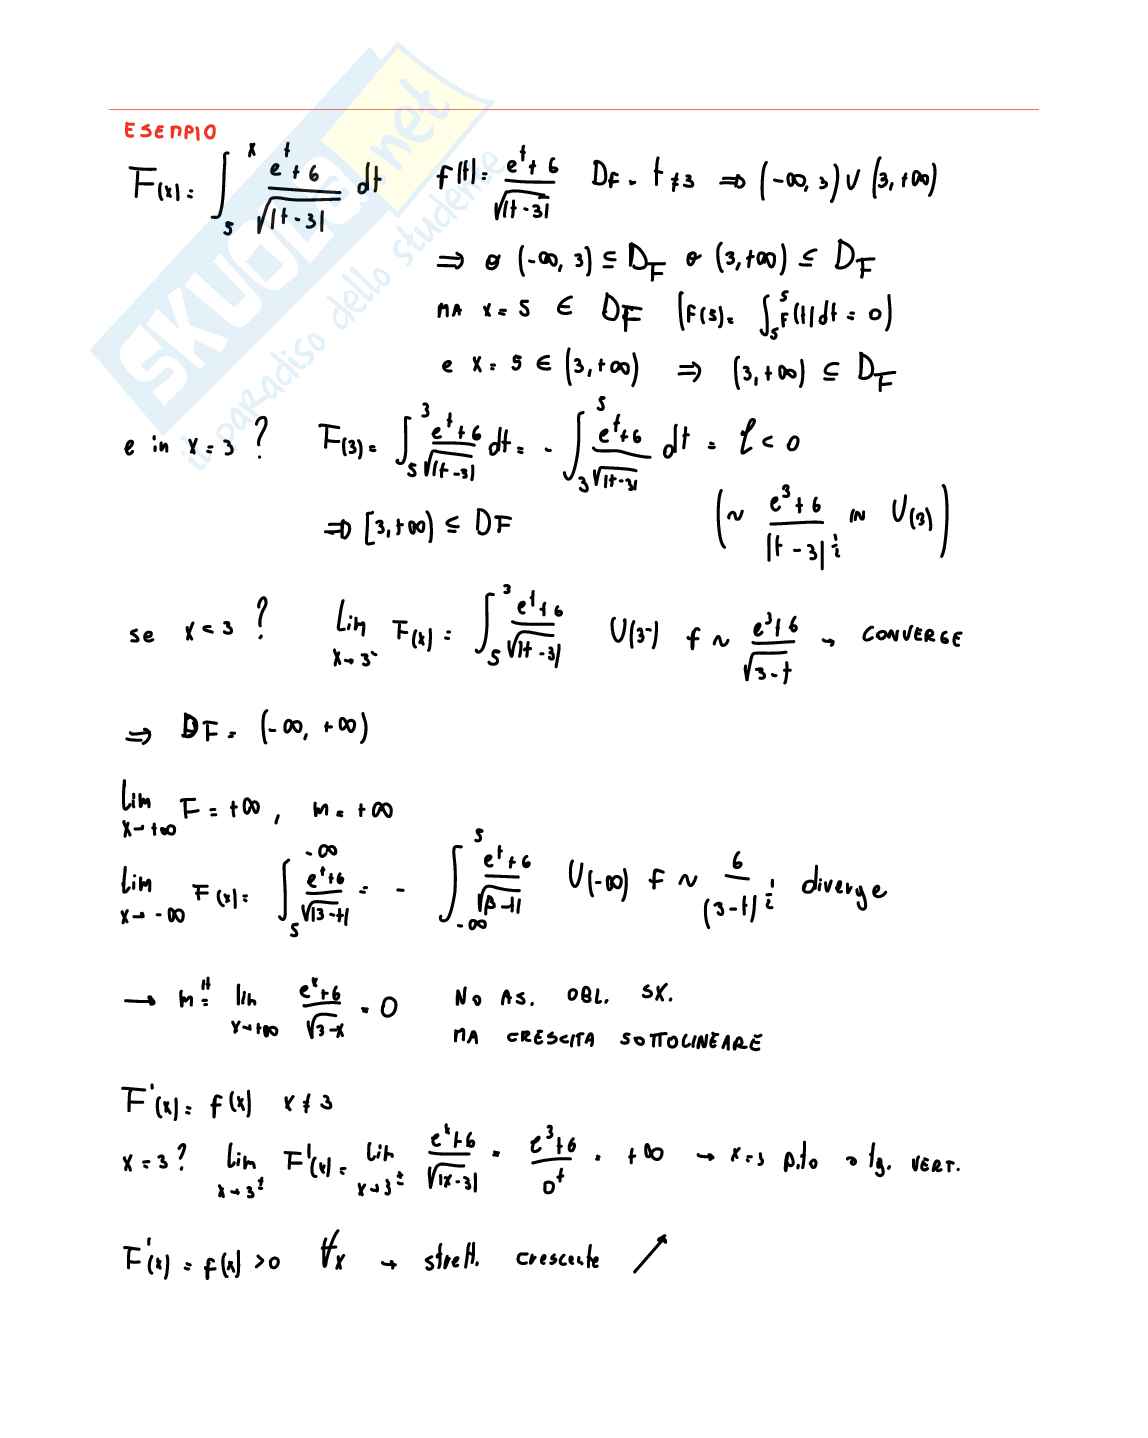 SKUOLA.net
il paradiso dello studente
ESEMPIO
F(x) = ∫_5^x (e^t + 6)/√|t - 3| dt   f(t) = (e^t + 6)/√|t - 3|   D_f = t ≠ 3 ⇒ (-∞, 3) ∪ (3, +∞)
⇒ o (-∞, 3) ⊆ D_F o (3, +∞) ⊆ D_F
MA x = 5 ∈ D_F (F(5) = ∫_5^5 f(t) dt = 0)
e x = 5 ∈ (3, +∞) ⇒ (3, +∞) ⊆ D_F
e in x = 3 ?   F(3) = ∫_5^3 (e^t + 6)/√|t - 3| dt = - ∫_3^5 (e^t + 6)/√|t - 3| dt = ℓ < 0
⇒ [3, +∞) ⊆ DF   (∼ (e^3 + 6)/|t - 3|^{1/2} IN U(3))
se x < 3 ?   Lim_{x→3^-} F(x) = ∫_5^3 (e^t + 6)/√|t - 3|   U(3^-) f ∼ (e^3 + 6)/√(3 - t) → CONVERGE
⇒ DF = (-∞, +∞)
Lim_{x→+∞} F = +∞ , m = +∞
Lim_{x→-∞} F(x) = ∫_5^{-∞} (e^t + 6)/√|3 - t| = - ∫_{-∞}^5 (e^t + 6)/√|3 - t|   U(-∞) f ∼ 6/(3 - t)^{1/2} diverge
→ m =^H lim_{x→+∞} (e^x + 6)/√(3 - x) = 0   NO AS. OBL. SX.
MA CRESCITA SOTTOLINEARE
F'(x) = f(x) x ≠ 3
x = 3 ? Lim_{x→3^±} F'(x) = Lim_{x→3^±} (e^x + 6)/√|x - 3| = (e^3 + 6)/0^+ = +∞ → x = 3 p.to a tg. VERT.
F'(x) = f(x) > 0 ∀x → strett. crescente ↗